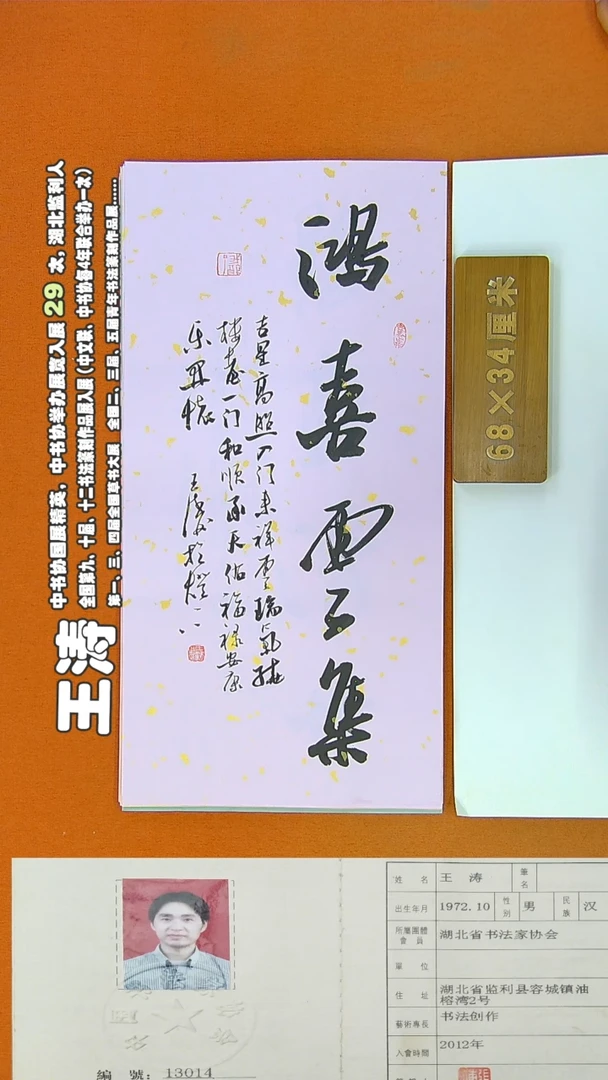 鸿喜云集
吉星高照入门来祥云瑞气绕
楼台一门和顺承天佑福禄安康
乐开怀
王涛
中书协国展精英，中书协举办展赛入展 29 次，湖北监利人
全国第九、十届、十二书法篆刻作品展入展（中文联、中书协每4年联合举办一次）
第一、三、四届全国扇书艺大展 全国二、三届、五届青年书法篆刻作品展……
68×34厘米
姓 名 王 涛 筆名
出生年月 1972.10 性別 男 民族 汉
所屬團體會員 湖北省书法家协会
單 位
住 址 湖北省监利县容城镇油榕湾2号
藝術專長 书法创作
入會時間 2012年
編 號：13014